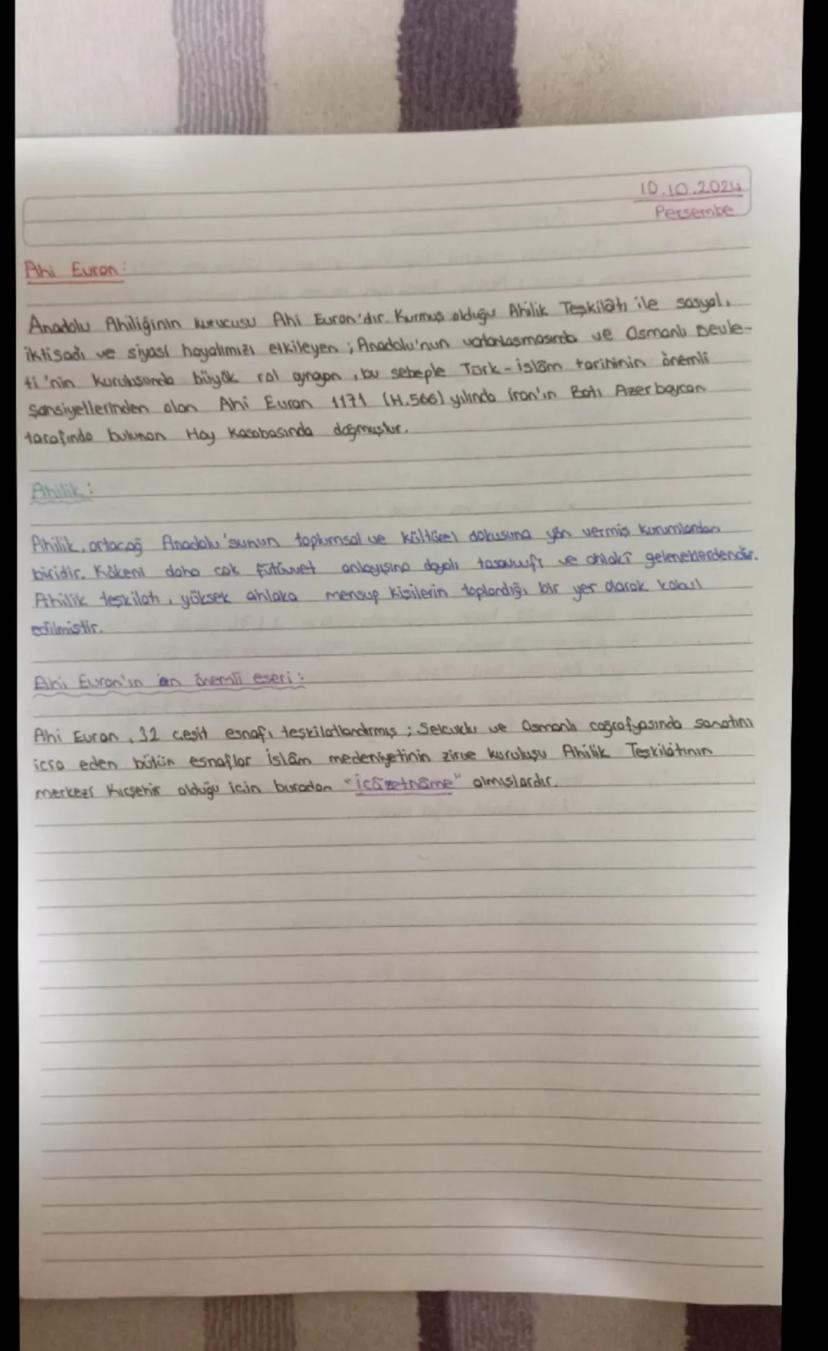 10.10.2024
Perşembe
Ahi Evran:
Anadolu Ahiliğinin kurucusu Ahi Evran'dır. Kurmuş olduğu Ahilik Teşkilatı ile sosyal,
iktisadi ve siyasi hayatımızı etkileyen; Anadolu'nun vatanlaşmasında ve Osmanlı Devle-
ti'nin kuruluşunda büyük rol oynayan, bu sebeple Türk-İslâm tarihinin önemli
şansiyetlerinden olan Ahi Evran 1171 (H.566) yılında İran'ın Batı Azerbaycan
tarafında bulunan Hoy Kasabasında doğmuştur.
Ahilik:
Ahilik, ortaçağ Anadolu'sunun toplumsal ve kültürel dokusuna yön vermiş kurumlardan
biridir. Kökeni daha çok Fütüvvet anlayışına dayalı tasavvufi ve ahlaki geleneklerdendir.
Ahilik teşkilatı, yüksek ahlaka mensup kişilerin toplandığı bir yer olarak kabul
edilmiştir.
Ahi Evran'ın en önemli eseri:
Ahi Evran, 32 çeşit esnafı teşkilatlandırmış; Selçuklu ve Osmanlı coğrafyasında sanatını
icra eden bütün esnaflar İslâm medeniyetinin zirve kuruluşu Ahilik Teşkilâtının
merkezi Kırşehir olduğu için buradan "İcâzetnâme" almışlardır.